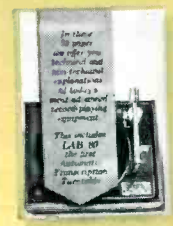 In these
paper
we offer you
technical and
non-technical
explanations
of today's
most advanced
record playing
equipment.
This includes
LAB 80
the first
Automatic
Transcription
Turntable